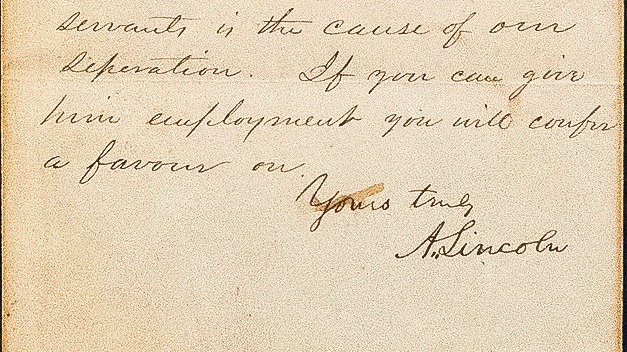 servants is the cause of our
seperation. If you can give
him employment you will confer
a favour on
Yours truly
A. Lincoln